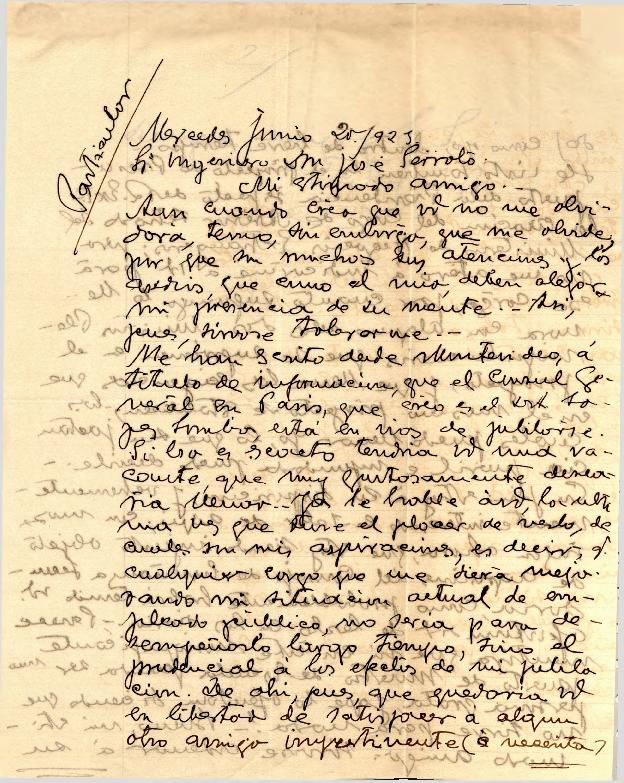 Particular
Mercedes Junio 20/923
Sr Ingeniero Dn José Serrato.
Mi estimado amigo.-
Aun cuando creo que vd no me olvi-
dará, temo, sin embargo, que me olvide,
por que son muchos sus atenciones y los
asedios que como el mio, deben alejar
mi presencia de su mente.- Asi,
pues, sirvase tolerarme.-
Me han escrito desde Montevideo, á
titulo de informacion, que el Consul Ge-
neral en Paris, que creo es el
está en vias de jubilarse.
Si eso es secreto tendria vd una va-
cante, que muy gustosamente desea-
ria llenar.- Ya le hablé á vd, la ulti
ma vez que tuve el placer de verlo, de
cuales son mis aspiraciones, es decir, q.
cualquier cargo que me diera mejo-
rando mi situacion actual de em-
pleado público, no seria para de-
sempeñarlo largo tiempo, sino el
prudencial á los efectos de mi jubila
cion. De ahi, pues, que quedaria vd
en libertad de satisfacer á algun
otro amigo impertinente (ó necesita-)